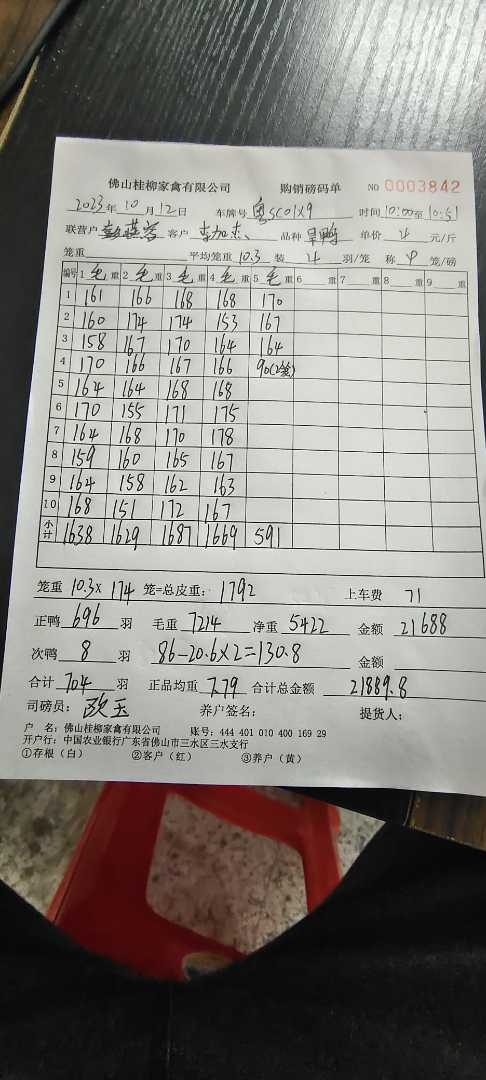 佛山桂柳家禽有限公司 购销磅码单 NO 0003842
2023年10月12日 车牌号 粤SC01X9 时间 10:00至10:51
联营户 客户 品种 单价 4 元/斤
笼重 平均笼重 10.3 装 4 羽/笼 称 4 笼/磅
编号 1 毛 重 2 毛 重 3 毛 重 4 毛 重 5 毛 重 6 重 7 重 8 重 9 重
1 161 166 168 168 170
2 160 174 174 153 167
3 158 167 170 164 164
4 170 166 167 166 90(2笼)
5 164 164 168 168
6 170 155 171 175
7 164 168 170 178
8 159 160 165 167
9 164 158 162 163
10 168 151 172 167
小计 1638 1629 1687 1669 591
笼重 10.3× 174 笼=总皮重: 1792 上车费 71
正鸭 696 羽 毛重 7214 净重 5422 金额 21688
次鸭 8 羽 86-20.6×2=130.8 金额
合计 704 羽 正品均重 7.79 合计总金额 21889.8
司磅员: 欧玉 养户签名: 提货人:
户 名: 佛山桂柳家禽有限公司 账号: 444 401 010 400 169 29
开户行: 中国农业银行广东省佛山市三水区三水支行
①存根(白) ②客户(红) ③养户(黄)